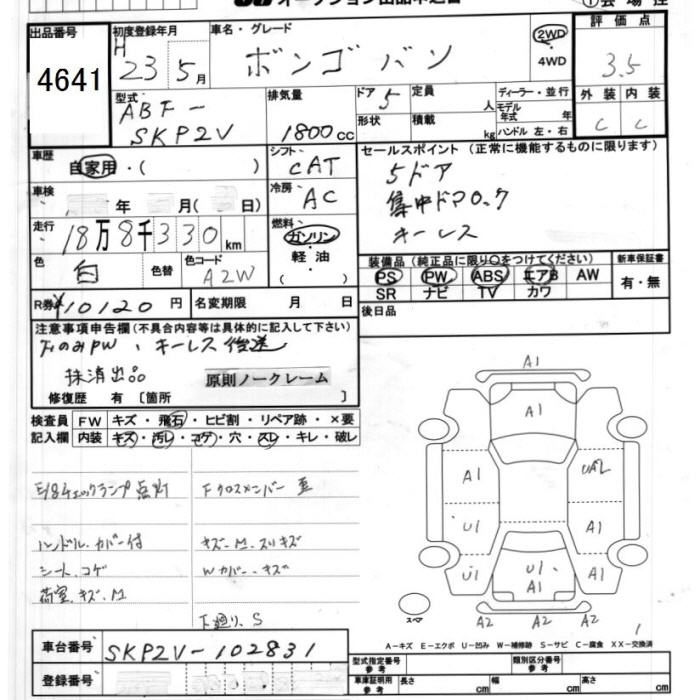 出品番号
4641
初度登録年月
H
23 5月
車名・グレード
ボンゴ バン
2WD
・
4WD
評価点
3.5
外装 内装
C C
型式
ABF-
SKP2V
排気量
1800cc
ドア
5
形状
定員
人
積載
kg
ディーラー・並行
モデル
年式 年
ハンドル 左・右
車歴
自家用・( )
シフト
CAT
セールスポイント (正常に機能するものに限ります)
5ドア
集中ドアロック
キーレス
車検
年 月( 日)
冷房
AC
走行
18万8千330km
燃料
ガソリン
・
軽油
( )
色
白
色替
色コード
A2W
装備品 (純正品に限り○をつけてください)
PS PW ABS エアB AW
SR ナビ TV カワ
新車保証書
有・無
R券 ¥10120円
名変期限 月 日
後日品
注意事項申告欄 (不具合内容等は具体的に記入して下さい)
のみPW、キーレス後送
抹消出品
原則ノークレーム
修復歴 有 [箇所 ]
検査員
記入欄
FW キズ・飛石・ヒビ割・リペア跡・×要
内装 キズ・汚レ・コゲ・穴・スレ・キレ・破レ
E/gチェックランプ点灯
Fクロスメンバー
ハンドル、カバー付
キズ-M、スリキズ
シート、コゲ
Wカバー、キズ
荷室、キズ、M
下廻り、S
A1
A1
A1
UA2
U1
A1
U1
U1
A1
A1
スペア
A2 A2 A2
1
A-キズ E-エクボ U-凹み W-補修跡 S-サビ C-腐食 XX-交換済
車台番号
SKP2V-102831
登録番号
型式指定番号
参考
類別区分番号
参考
車庫証明用
参考
長さ
cm
幅
cm
高さ
cm